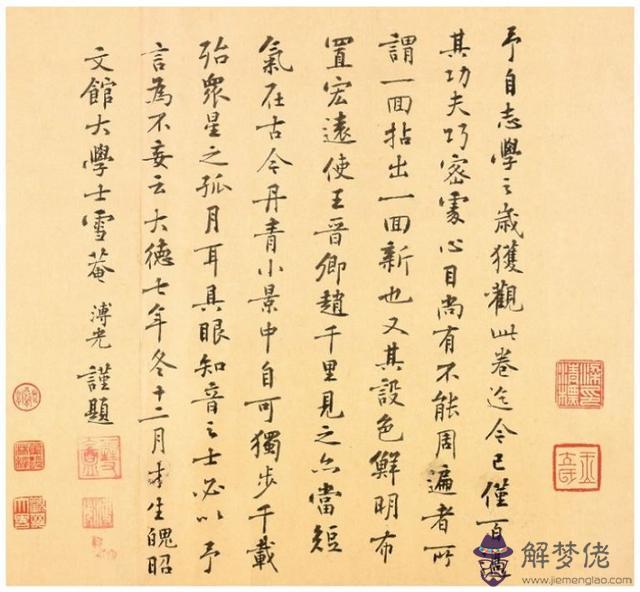 予自志學之歲獲觀此卷迄今已僅百過
其功夫巧密處心目尚有不能周遍者所
謂一回拈出一回新也又其設色鮮明布
置宏遠使王晉卿趙千里見之亦當短
氣在古今丹青小景中自可獨步千載
殆衆星之孤月耳具眼知音之士必以予
言為不妄云大德七年冬十二月才生魄昭
文館大學士雪菴溥光謹題
解梦佬
www.jiemenglao.com